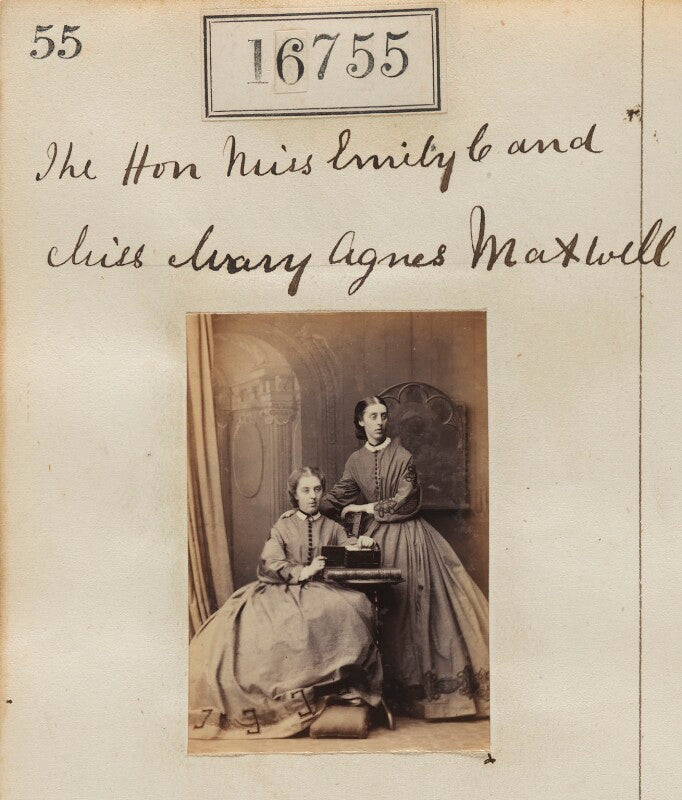 55
16755
The Hon Miss Emily C and
Miss Mary Agnes Maxwell